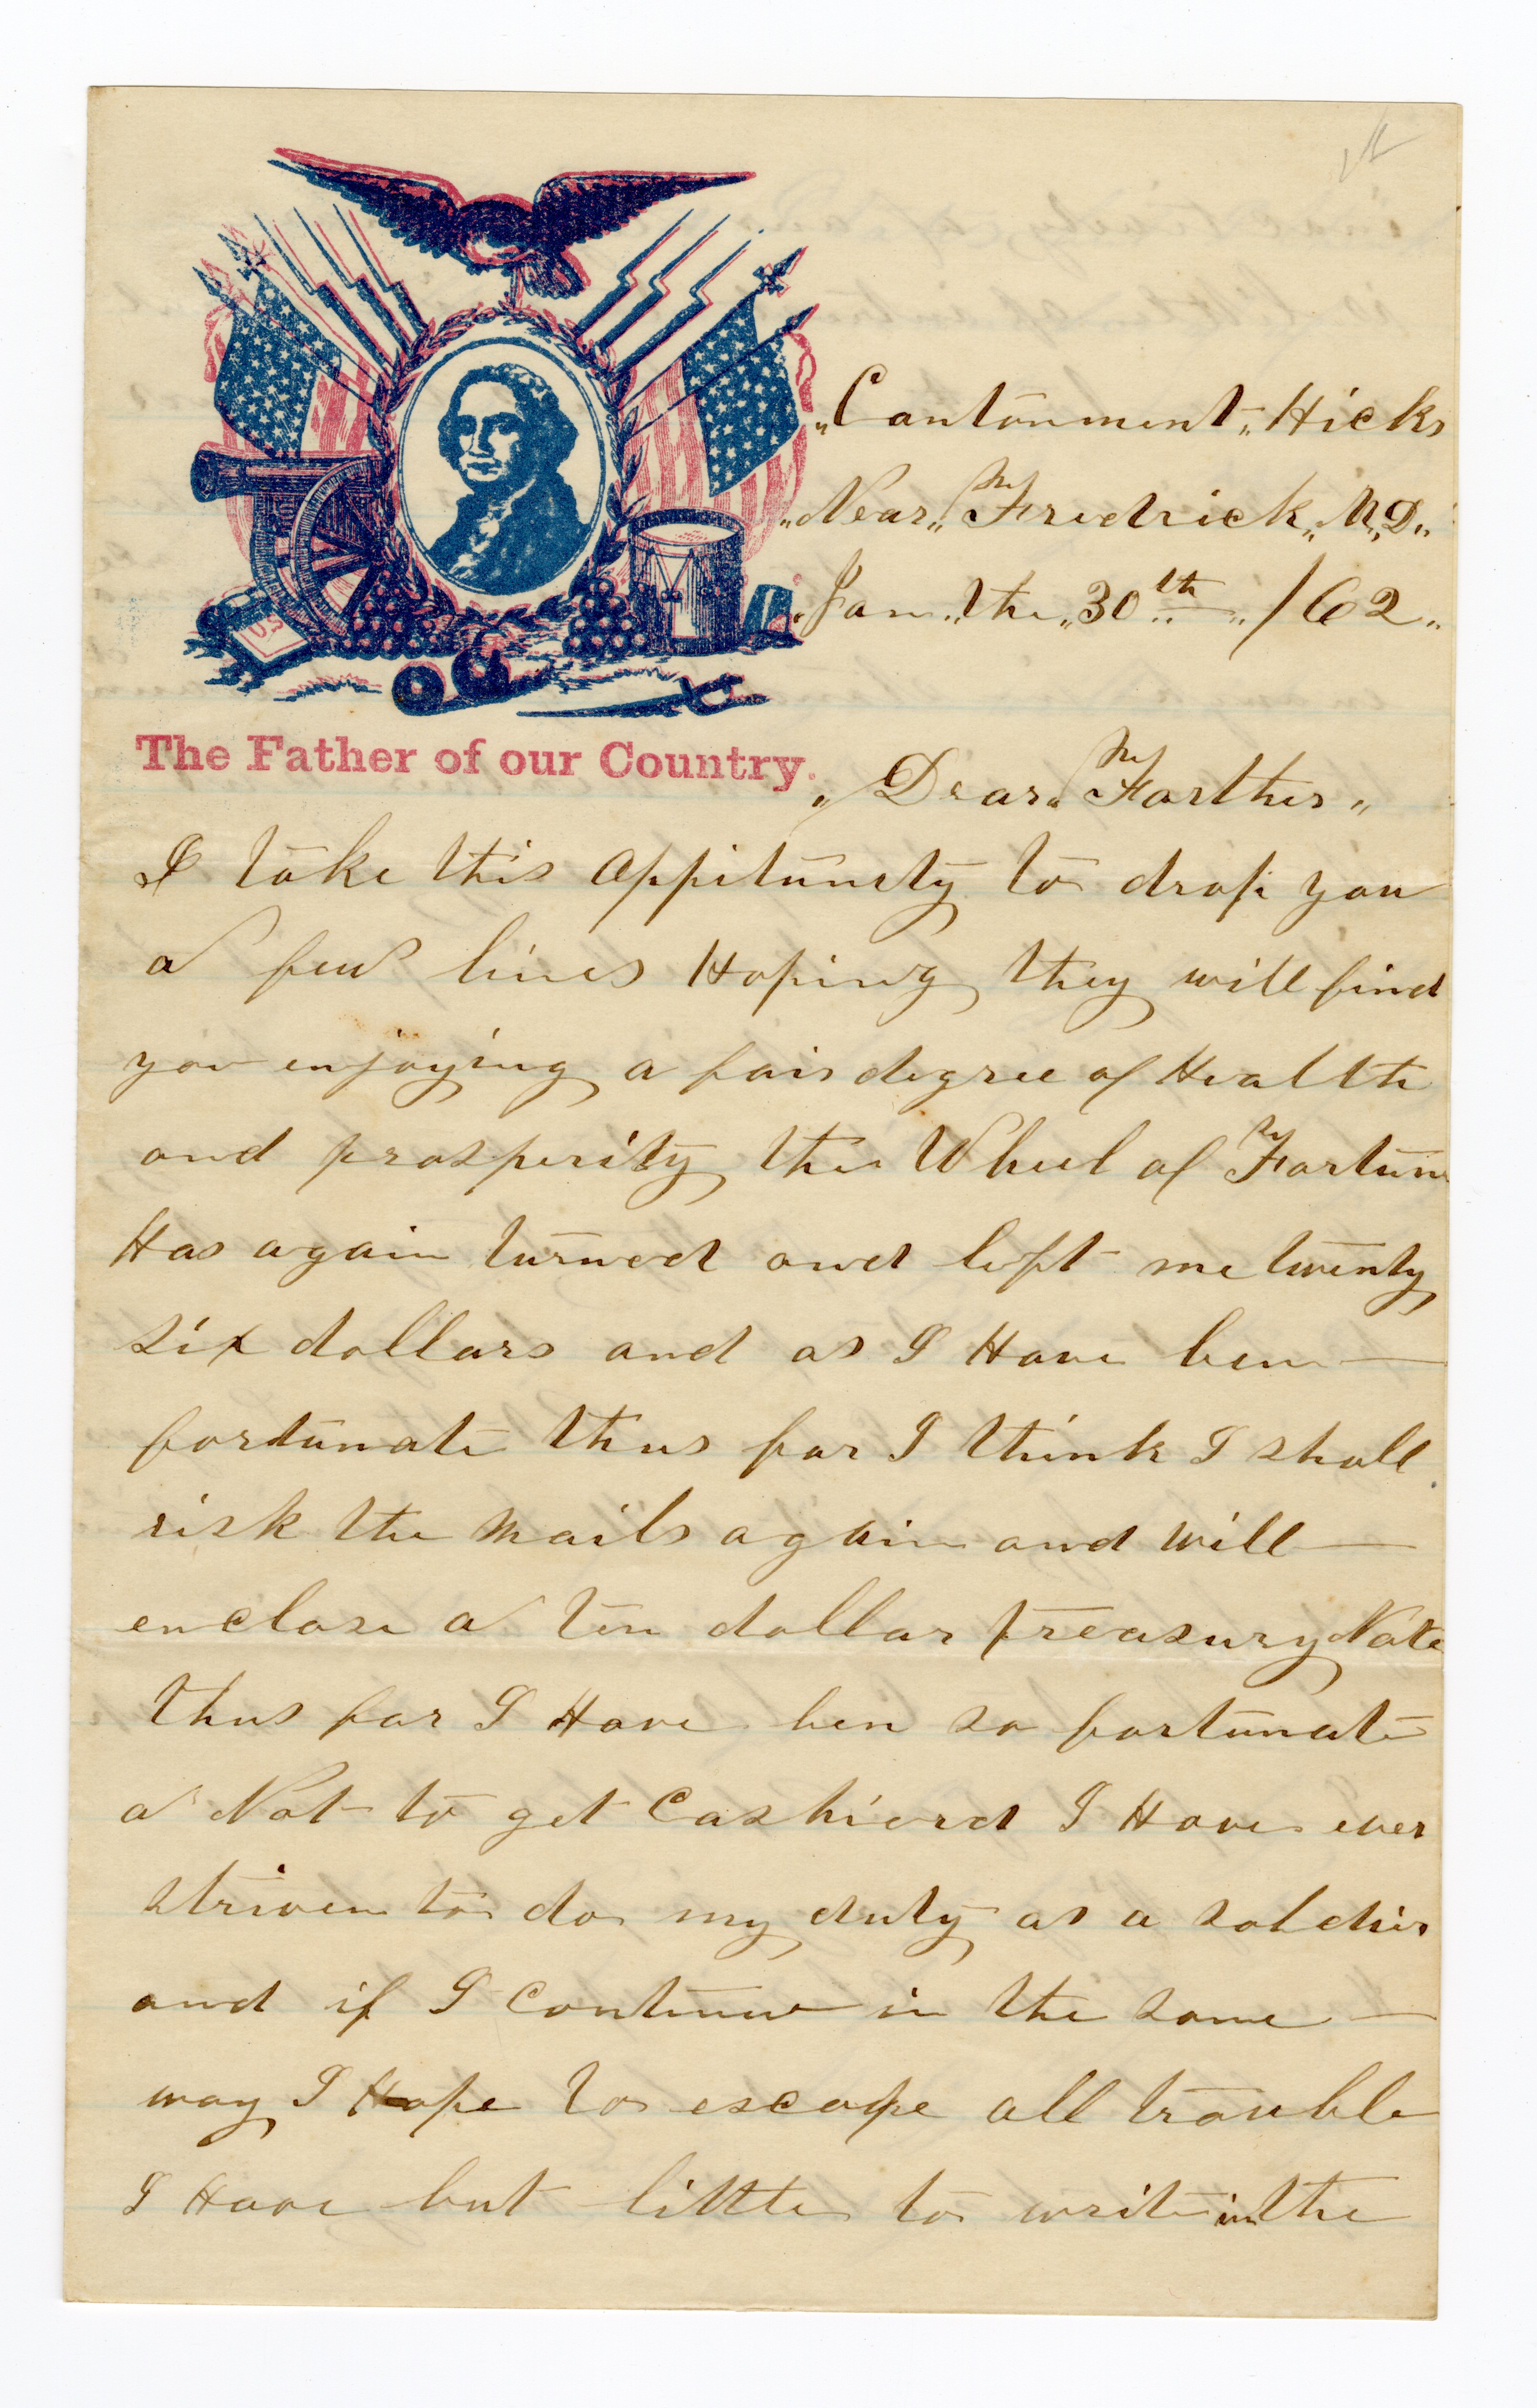 US
The Father of our Country.
„Cantonment„ Hicks
„Near„ Fredrick„ M„D„
„Jan„ the„ 30th„ /62„
„Dear„ Farther„
I take this appitunity to drop you
a few lines Hoping they will find
you enjoying a fair degree of Health
and prosperity the Wheel of Fortune
Has again turned and left me twenty
six dollars and as I Have ben
fortunate thus far I think I shall
risk the mails again and will
enclose a ten dollar treasury Note
thus far I Have ben so fortunate
a Not to get Cashierd I Have ever
striven to do my duty as a soldier
and if I continue in the same
way I Hope to escape all trouble
I Have but little to write in the